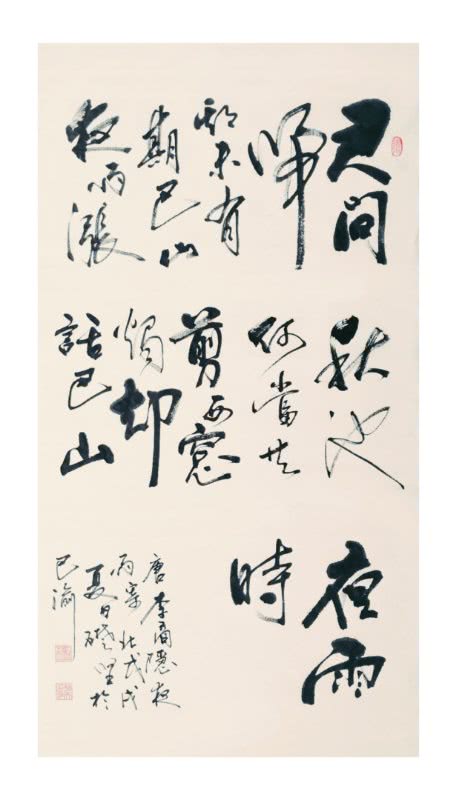 君問
歸
期未有
期巴山
夜雨漲
秋池
何當共
剪西窓
燭却
話巴山
夜雨
時
唐李商隱夜
雨寄北戊戌
夏日於
巴渝